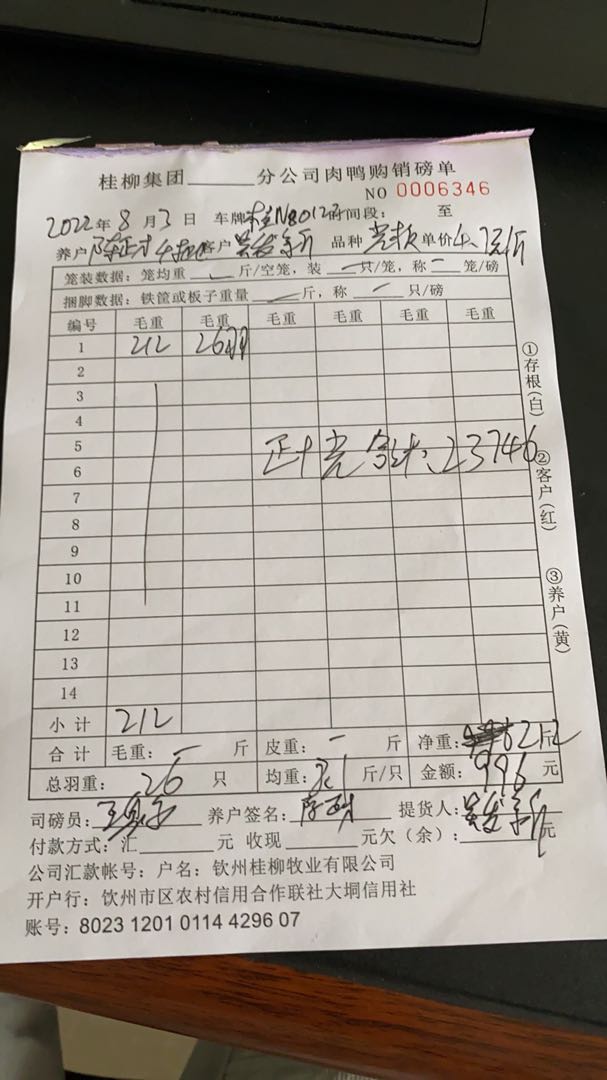 桂柳集团______分公司肉鸭购销磅单
NO 0006346
2022年8月3日 车牌 时间段: 至
养户 客户 品种 单价4.7元/斤
笼装数据: 笼均重 斤/空笼, 装 一 只/笼, 称 一 笼/磅
捆脚数据: 铁筐或板子重量 斤, 称 一 只/磅
编号 毛重 毛重 毛重 毛重 毛重 毛重
1 212 26羽
2
3
4
5
6
正 光 23746
7
8
9
10
11
12
13
14
小计 212
合计 毛重: 一 斤 皮重: 一 斤 净重: 斤
总羽重: 26 只 均重: 斤/只 金额: 996 元
司磅员: 养户签名: 提货人:
付款方式: 汇______元 收现______元欠(余): 元
公司汇款帐号: 户名: 钦州桂柳牧业有限公司
开户行: 钦州市区农村信用合作联社大垌信用社
账号: 8023 1201 0114 4296 07
①存根(白)
②客户(红)
③养户(黄)